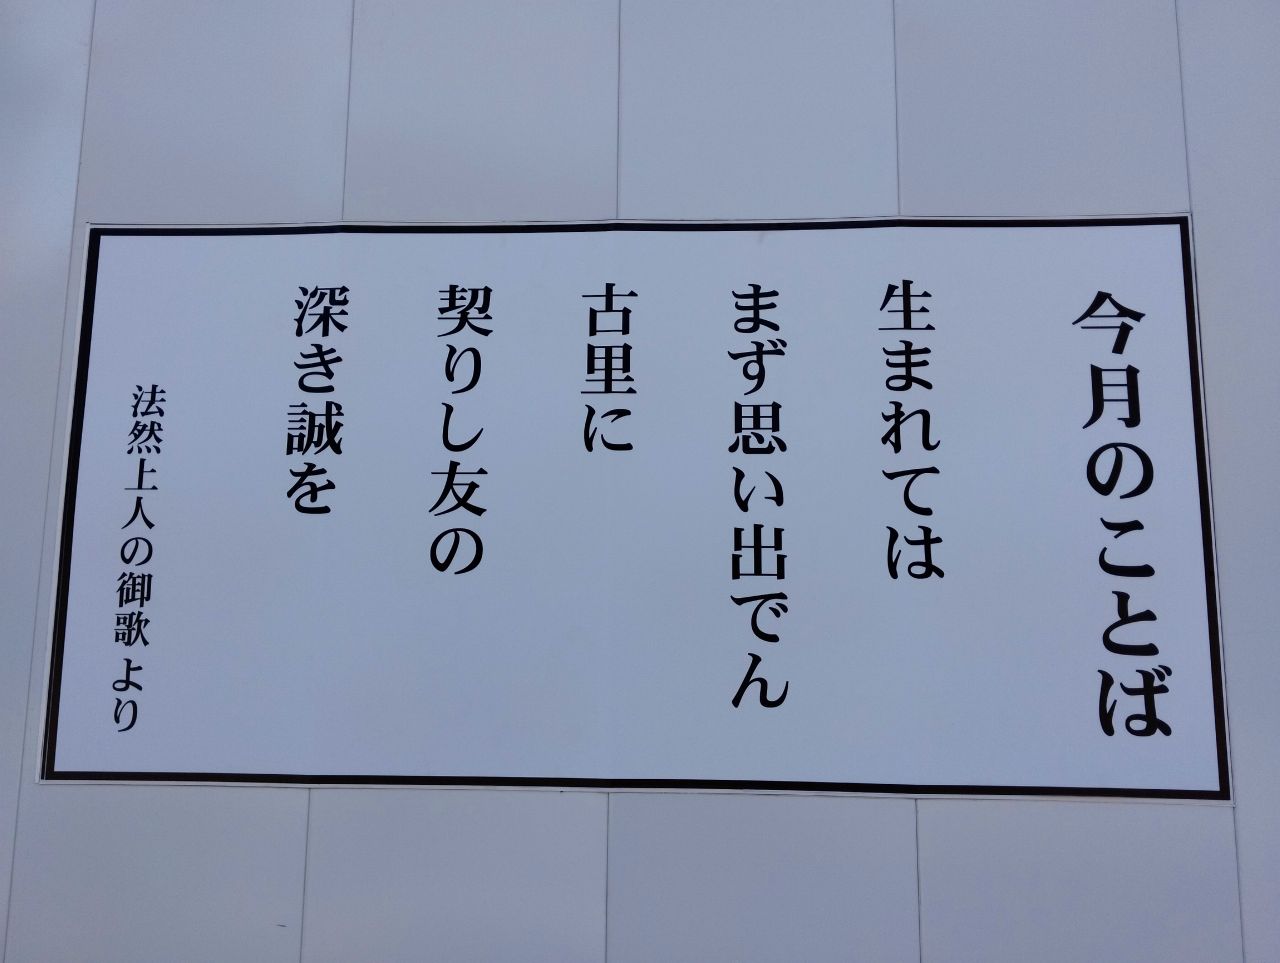 今月のことば
生まれては
まず思い出でん
古里に
契りし友の
深き誠を
法然上人の御歌より